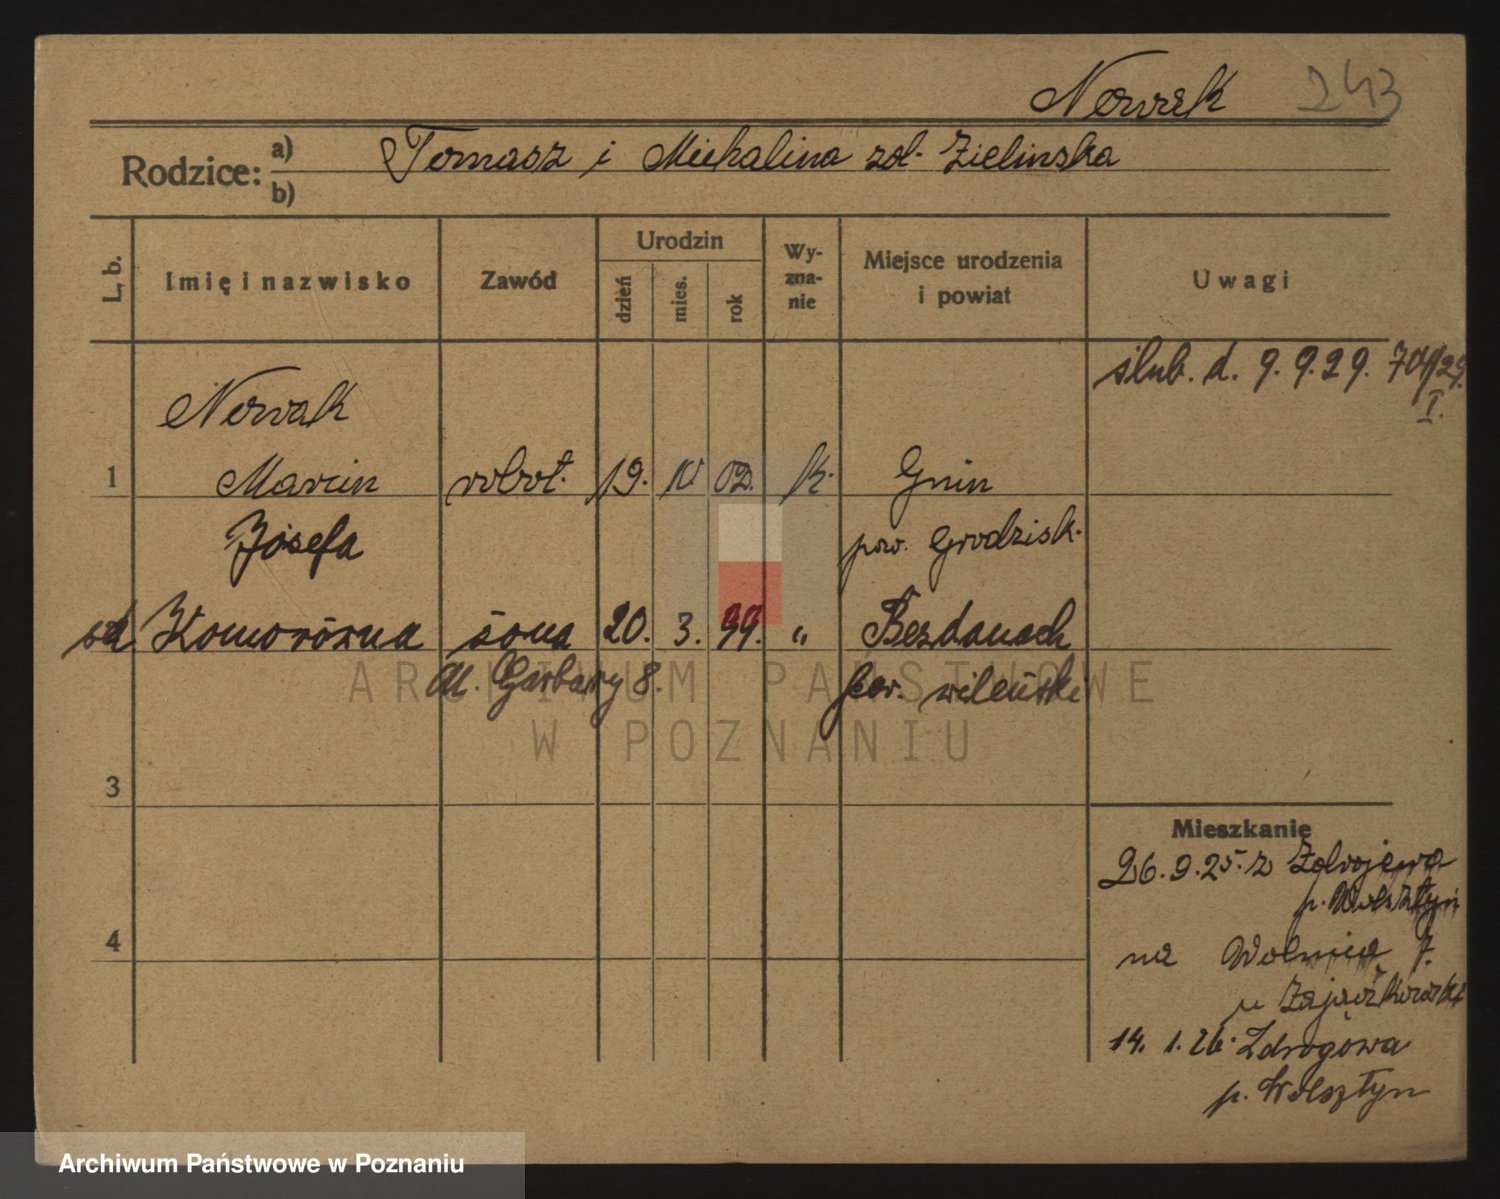 Nowak 243
Rodzice: a) Tomasz i Michalina zd. Zielinska
b)
L. b.
Imię i nazwisko
Zawód
Urodzin
dzień
mies.
rok
Wy-
zna-
nie
Miejsce urodzenia
i powiat
Uwagi
ślub. d. 9. 9. 29. 704/29.
I.
Nowak
1 Marcin robot. 19. XI 02. k. Gnin
Józefa pow. Grodzisk.
zd Komorózna żona 20. 3. 99. " Bezdanach
Ul. Garbary 8. pow. wileński
3
4
Mieszkanie
26. 9. 25. z Zdrojewa
p. Wolsztyn
na Wolnica 7.
u Zajączkowski
14. 1. 26. Zdrogowa
p. Wolsztyn
ARCHIWUM PAŃSTWOWE
W POZNANIU
Archiwum Państwowe w Poznaniu